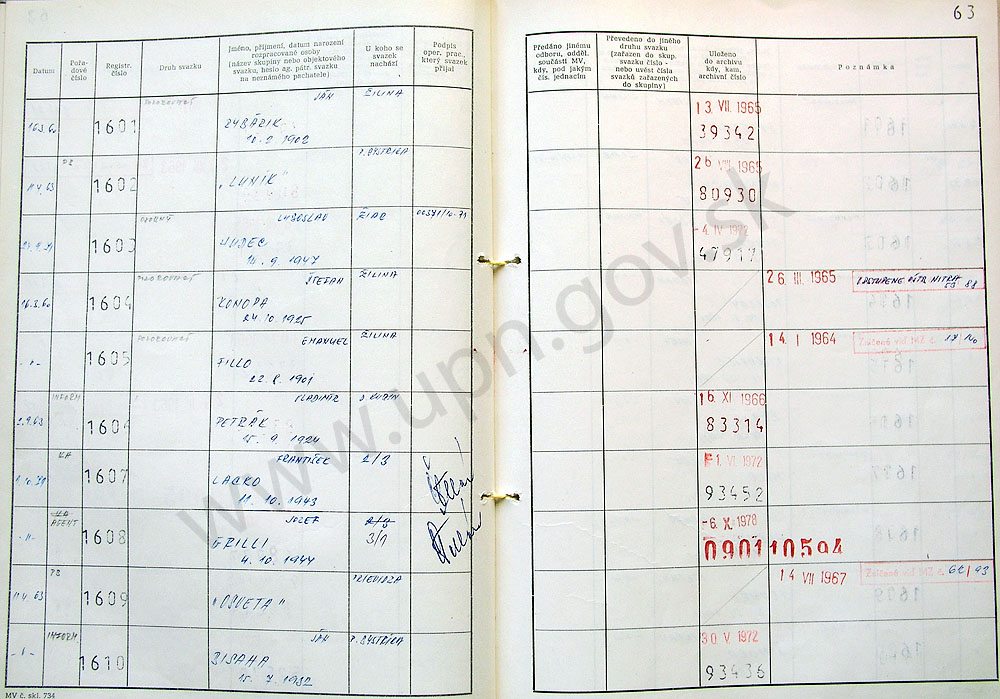 63
Datum
Pořadové číslo
Registr. číslo
Druh svazku
Jméno, příjmení, datum narození rozpracované osoby (název skupiny nebo objektového svazku, heslo ag. pátr. svazku na neznámého pachatele)
U koho se svazek nachází
Podpis oper. prac., který svazek přijal
Předáno jinému odboru, odděl. součásti MV, kdy, pod jakým čís. jednacím
Převedeno do jiného druhu svazku (zařazen do skup. svazku číslo - nebo uvést čísla svazků zařazených do skupiny)
Uloženo do archivu kdy, kam, archivní číslo
Poznámka
JÁN ŽILINA
1601 RYBÁRIK 13. VII. 1965
10. 2. 1902 39342
P. BYSTRICA
11.4.63 1602 „LUNÍK“ 26 VIII 1965
80930
ĽUBOSLAV ŽIAR
1603 HUDEC -4. IV 1972
9. 1947 47917
ŠTEFAN ŽILINA 26. III. 1965
16.3.60 1604 KONOPA
24.10.1925
EMANUEL ŽILINA 14. I 1964 Zničené viď MZ č.
-"- 1605 FILLO
22. 8. 1901
INFORM VLADIMÍR D. KUBÍN 16. XI 1966
2.9.63 1606 PETRÁK 83314
15. 9. 1924
KA FRANTIŠEK 2/3 1. VI. 1972
1.10.71 1607 LACKO 93452
11. 10. 1943
AGENT JOZEF 2/3 -6. X 1978
-"- 1608 GRILLI 3/1 090110594
4. 10. 1944
PRIEVIDZA 14 VII 1967 Zničené viď MZ č. 62/93
11.4.63 1609 „OSVETA“
INFORM. JÁN P. BYSTRICA 30 V 1972
-"- 1610 BISAHA 93436
15. 7. 1932
MV č. skl. 734
www.upn.gov.sk